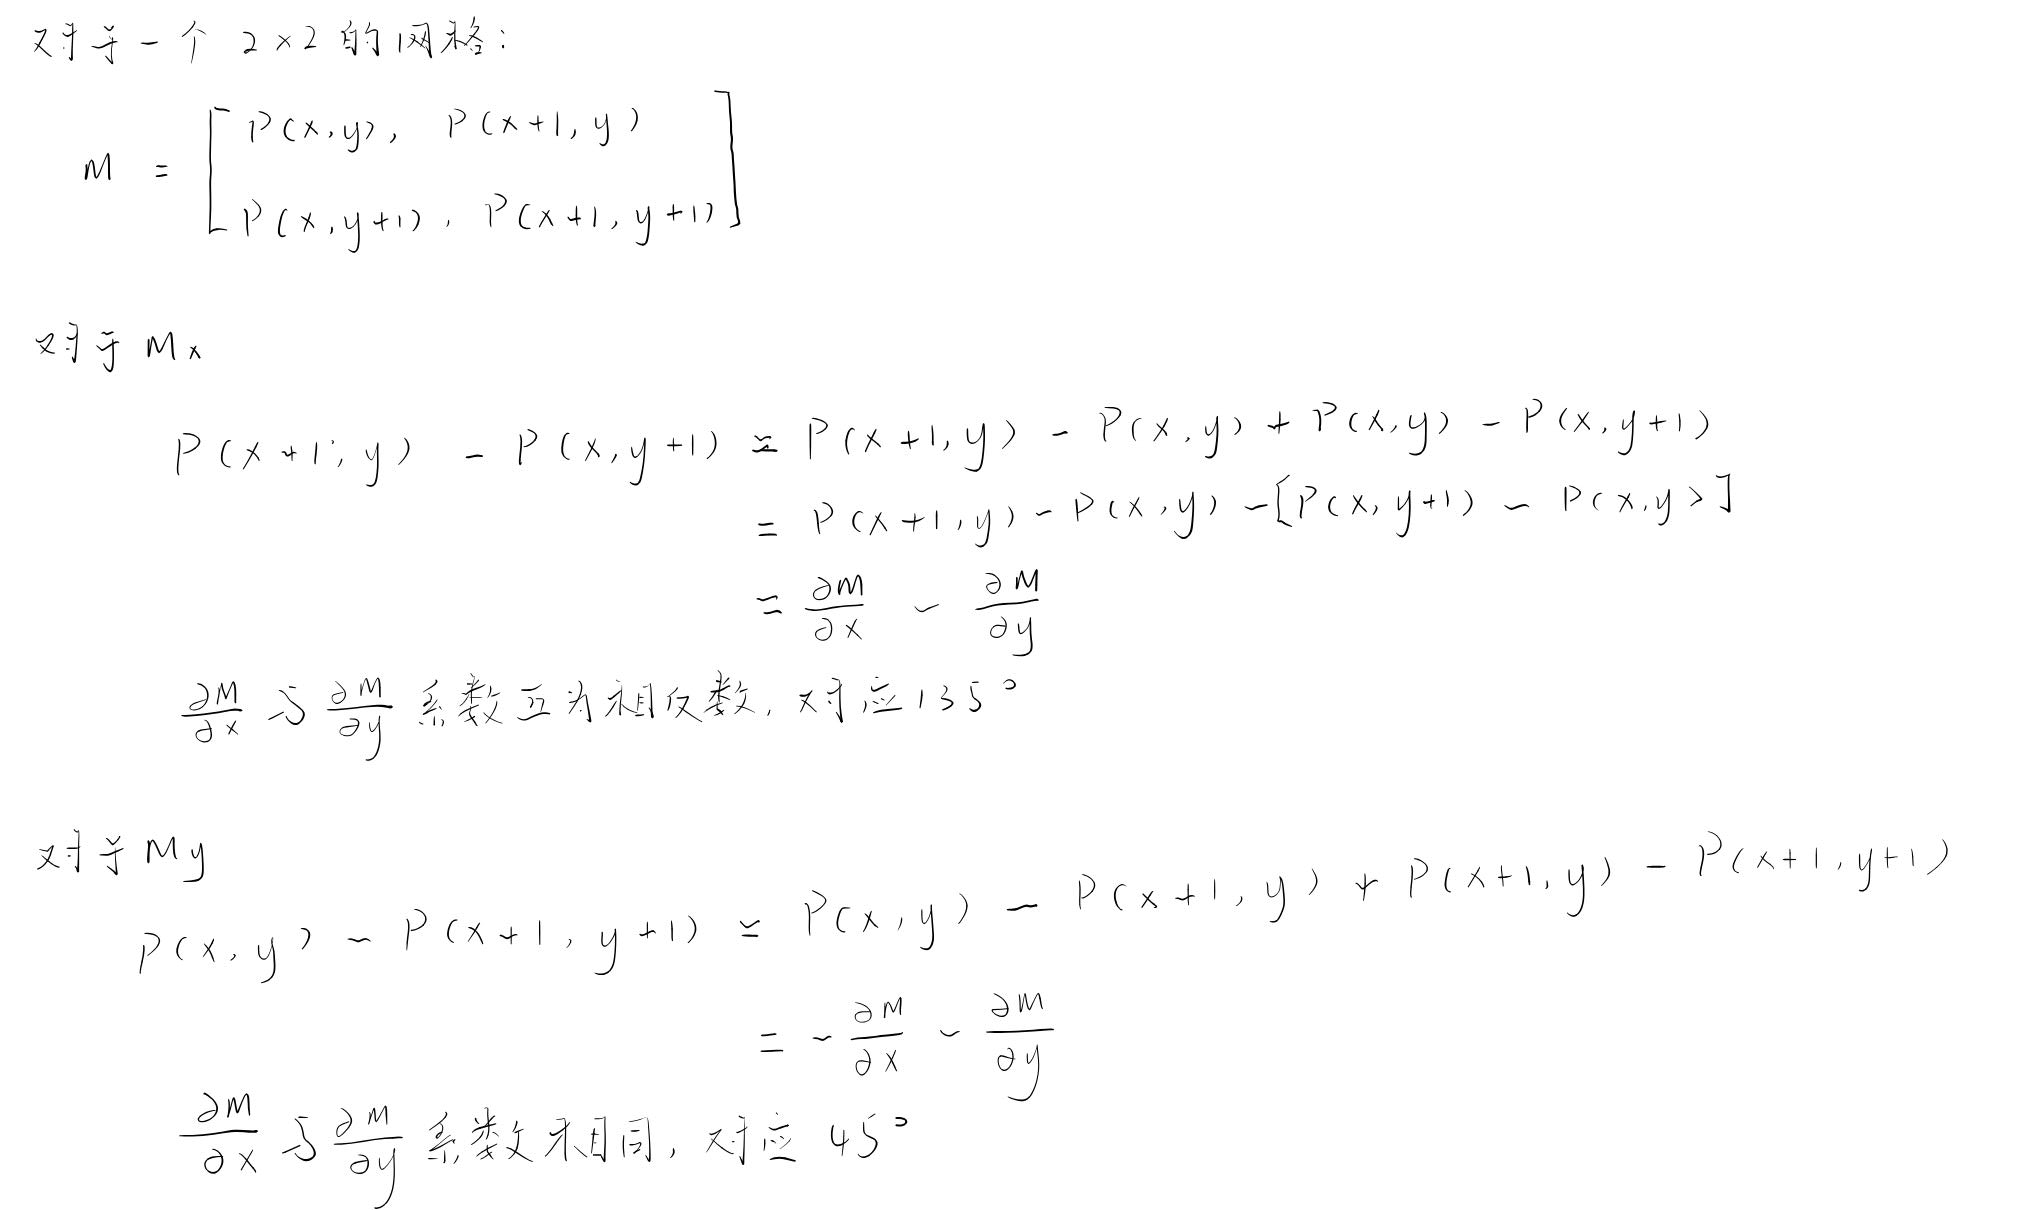 对于一个 2×2 的网格:
M = [ P(x,y), P(x+1,y)
P(x,y+1), P(x+1,y+1) ]
对于 Mx
P(x+1,y) - P(x,y+1) ≃ P(x+1,y) - P(x,y) + P(x,y) - P(x,y+1)
= P(x+1,y) - P(x,y) - [P(x,y+1) - P(x,y)]
≃ ∂M/∂x - ∂M/∂y
∂M/∂x 与 ∂M/∂y 系数互为相反数, 对应135°
对于My
P(x,y) - P(x+1,y+1) ≃ P(x,y) - P(x+1,y) + P(x+1,y) - P(x+1,y+1)
= -∂M/∂x - ∂M/∂y
∂M/∂x 与 ∂M/∂y 系数相同, 对应 45°